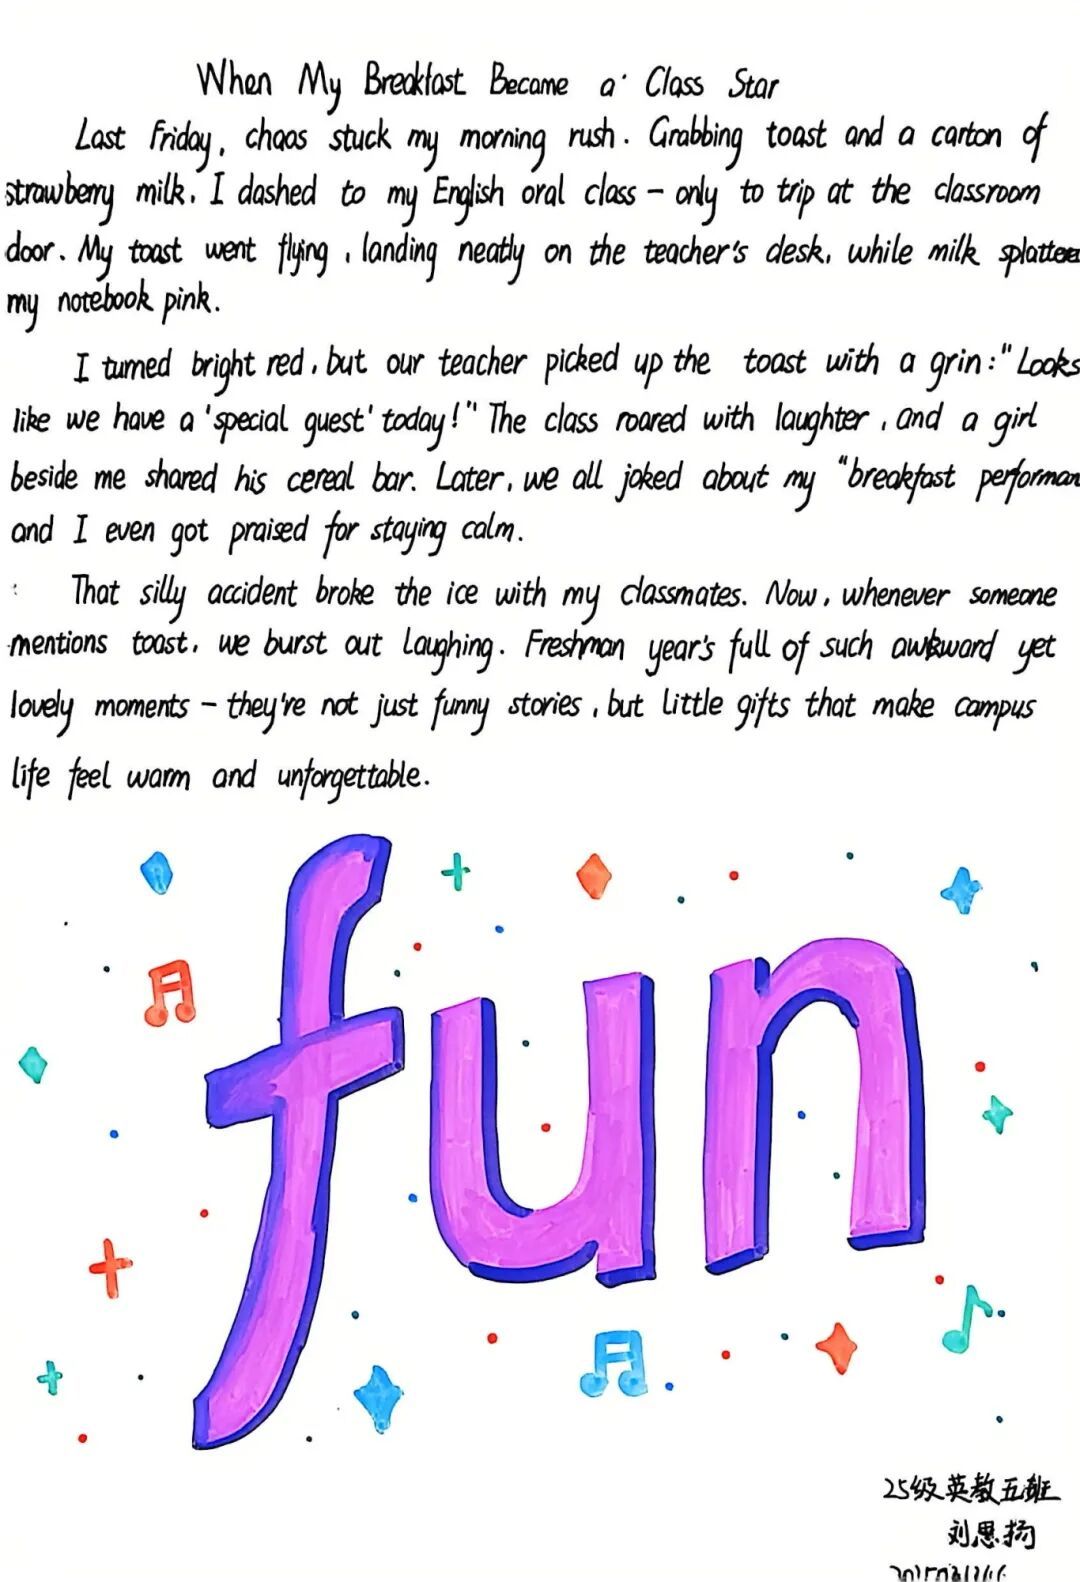 When My Breakfast Became a Class Star
Last Friday, chaos stuck my morning rush. Grabbing toast and a carton of
strawberry milk, I dashed to my English oral class – only to trip at the classroom
door. My toast went flying, landing neatly on the teacher's desk, while milk splattered
my notebook pink.
I turned bright red, but our teacher picked up the toast with a grin: "Looks
like we have a 'special guest' today!" The class roared with laughter, and a girl
beside me shared his cereal bar. Later, we all joked about my "breakfast performan
and I even got praised for staying calm.
That silly accident broke the ice with my classmates. Now, whenever someone
mentions toast, we burst out laughing. Freshman year's full of such awkward yet
lovely moments – they're not just funny stories, but little gifts that make campus
life feel warm and unforgettable.
fun
25级英教五班
刘思扬